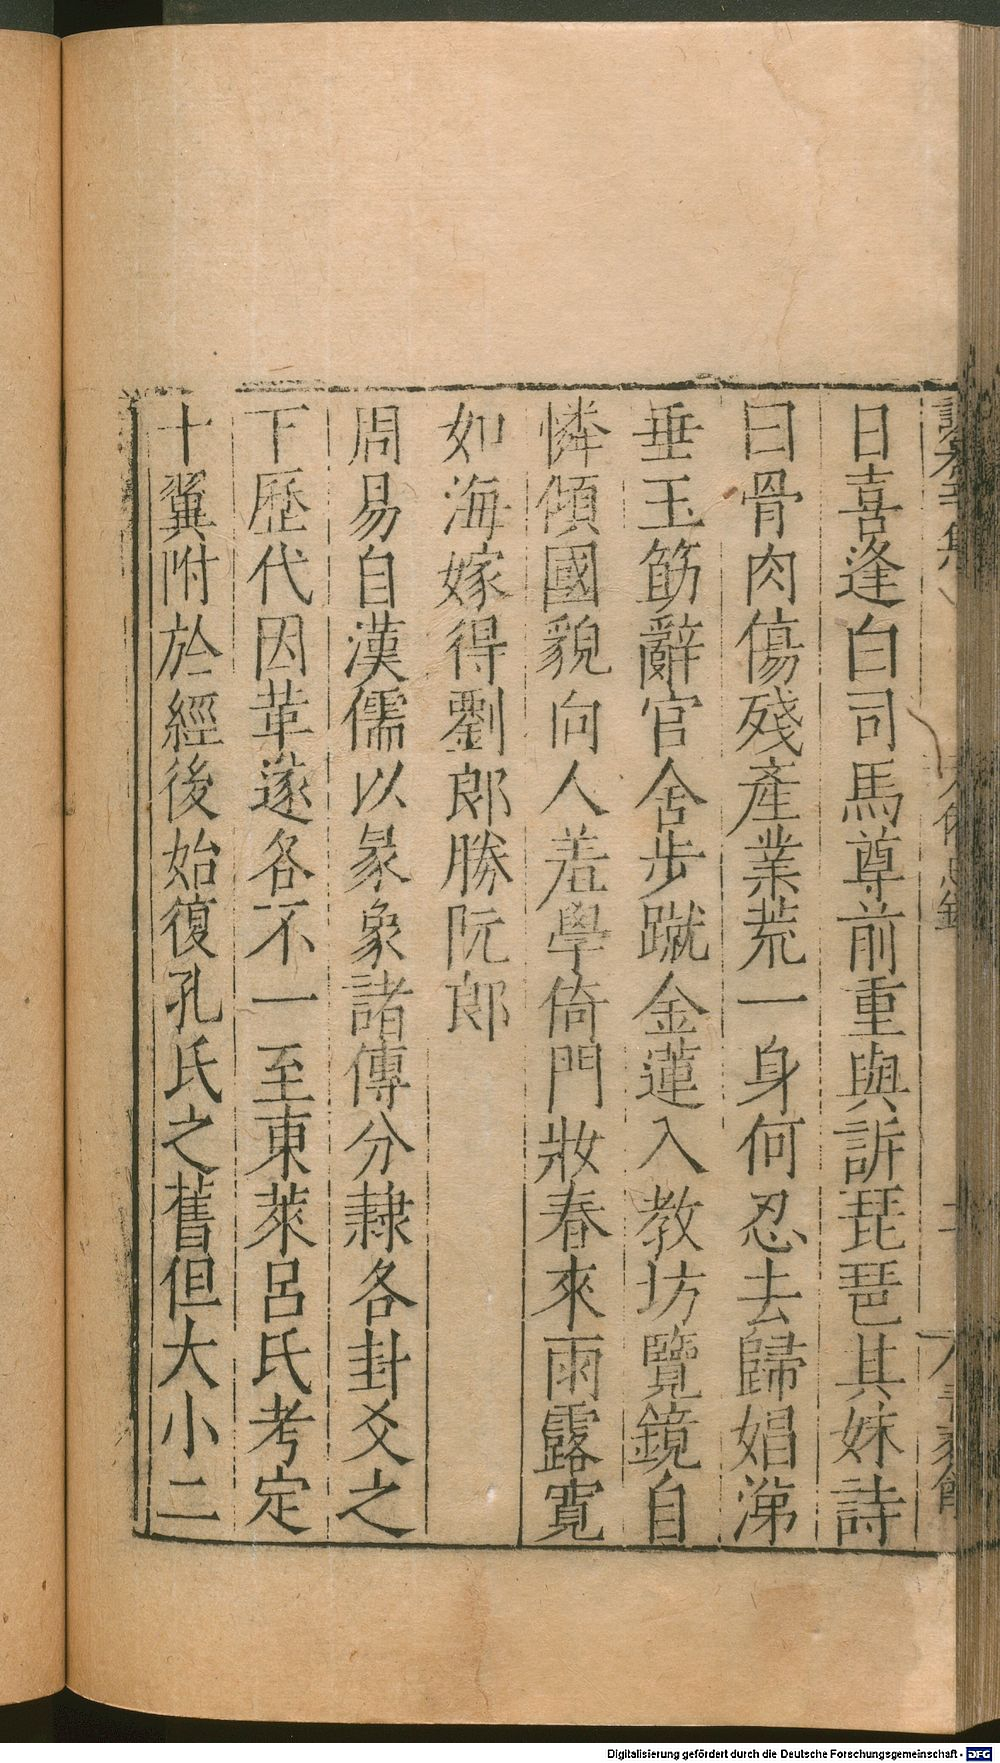 日喜逢白司馬尊前重與訴琵琶其妹詩
曰骨肉傷殘產業荒一身何忍去歸娼涕
垂玉筯辭官舍步蹴金蓮入教坊覽鏡自
憐傾國貌向人羞學倚門妝春來雨露寬
如海嫁得劉郎勝阮郎
周易自漢儒以彖象諸傳分隷各卦爻之
下歷代因革遂各不一至東萊呂氏考定
十翼附於經後始復孔氏之舊但大小二
Digitalisierung gefördert durch die Deutsche Forschungsgemeinschaft - DFG